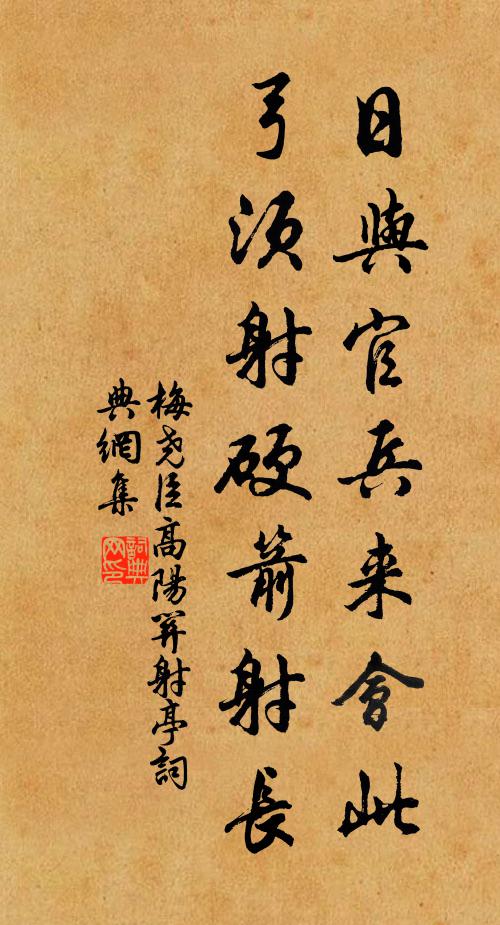 日與官兵来會此
弓須射硬箭射長
梅堯臣高陽關射亭詞
典網集
詞典
网印